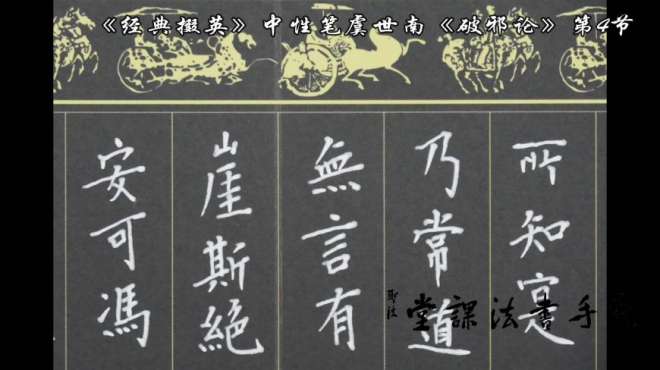 《经典掇英》中性笔虞世南《破邪论》第4节
所知寔
乃常道
無言有
崖斯絕
安可馮
手書法課堂